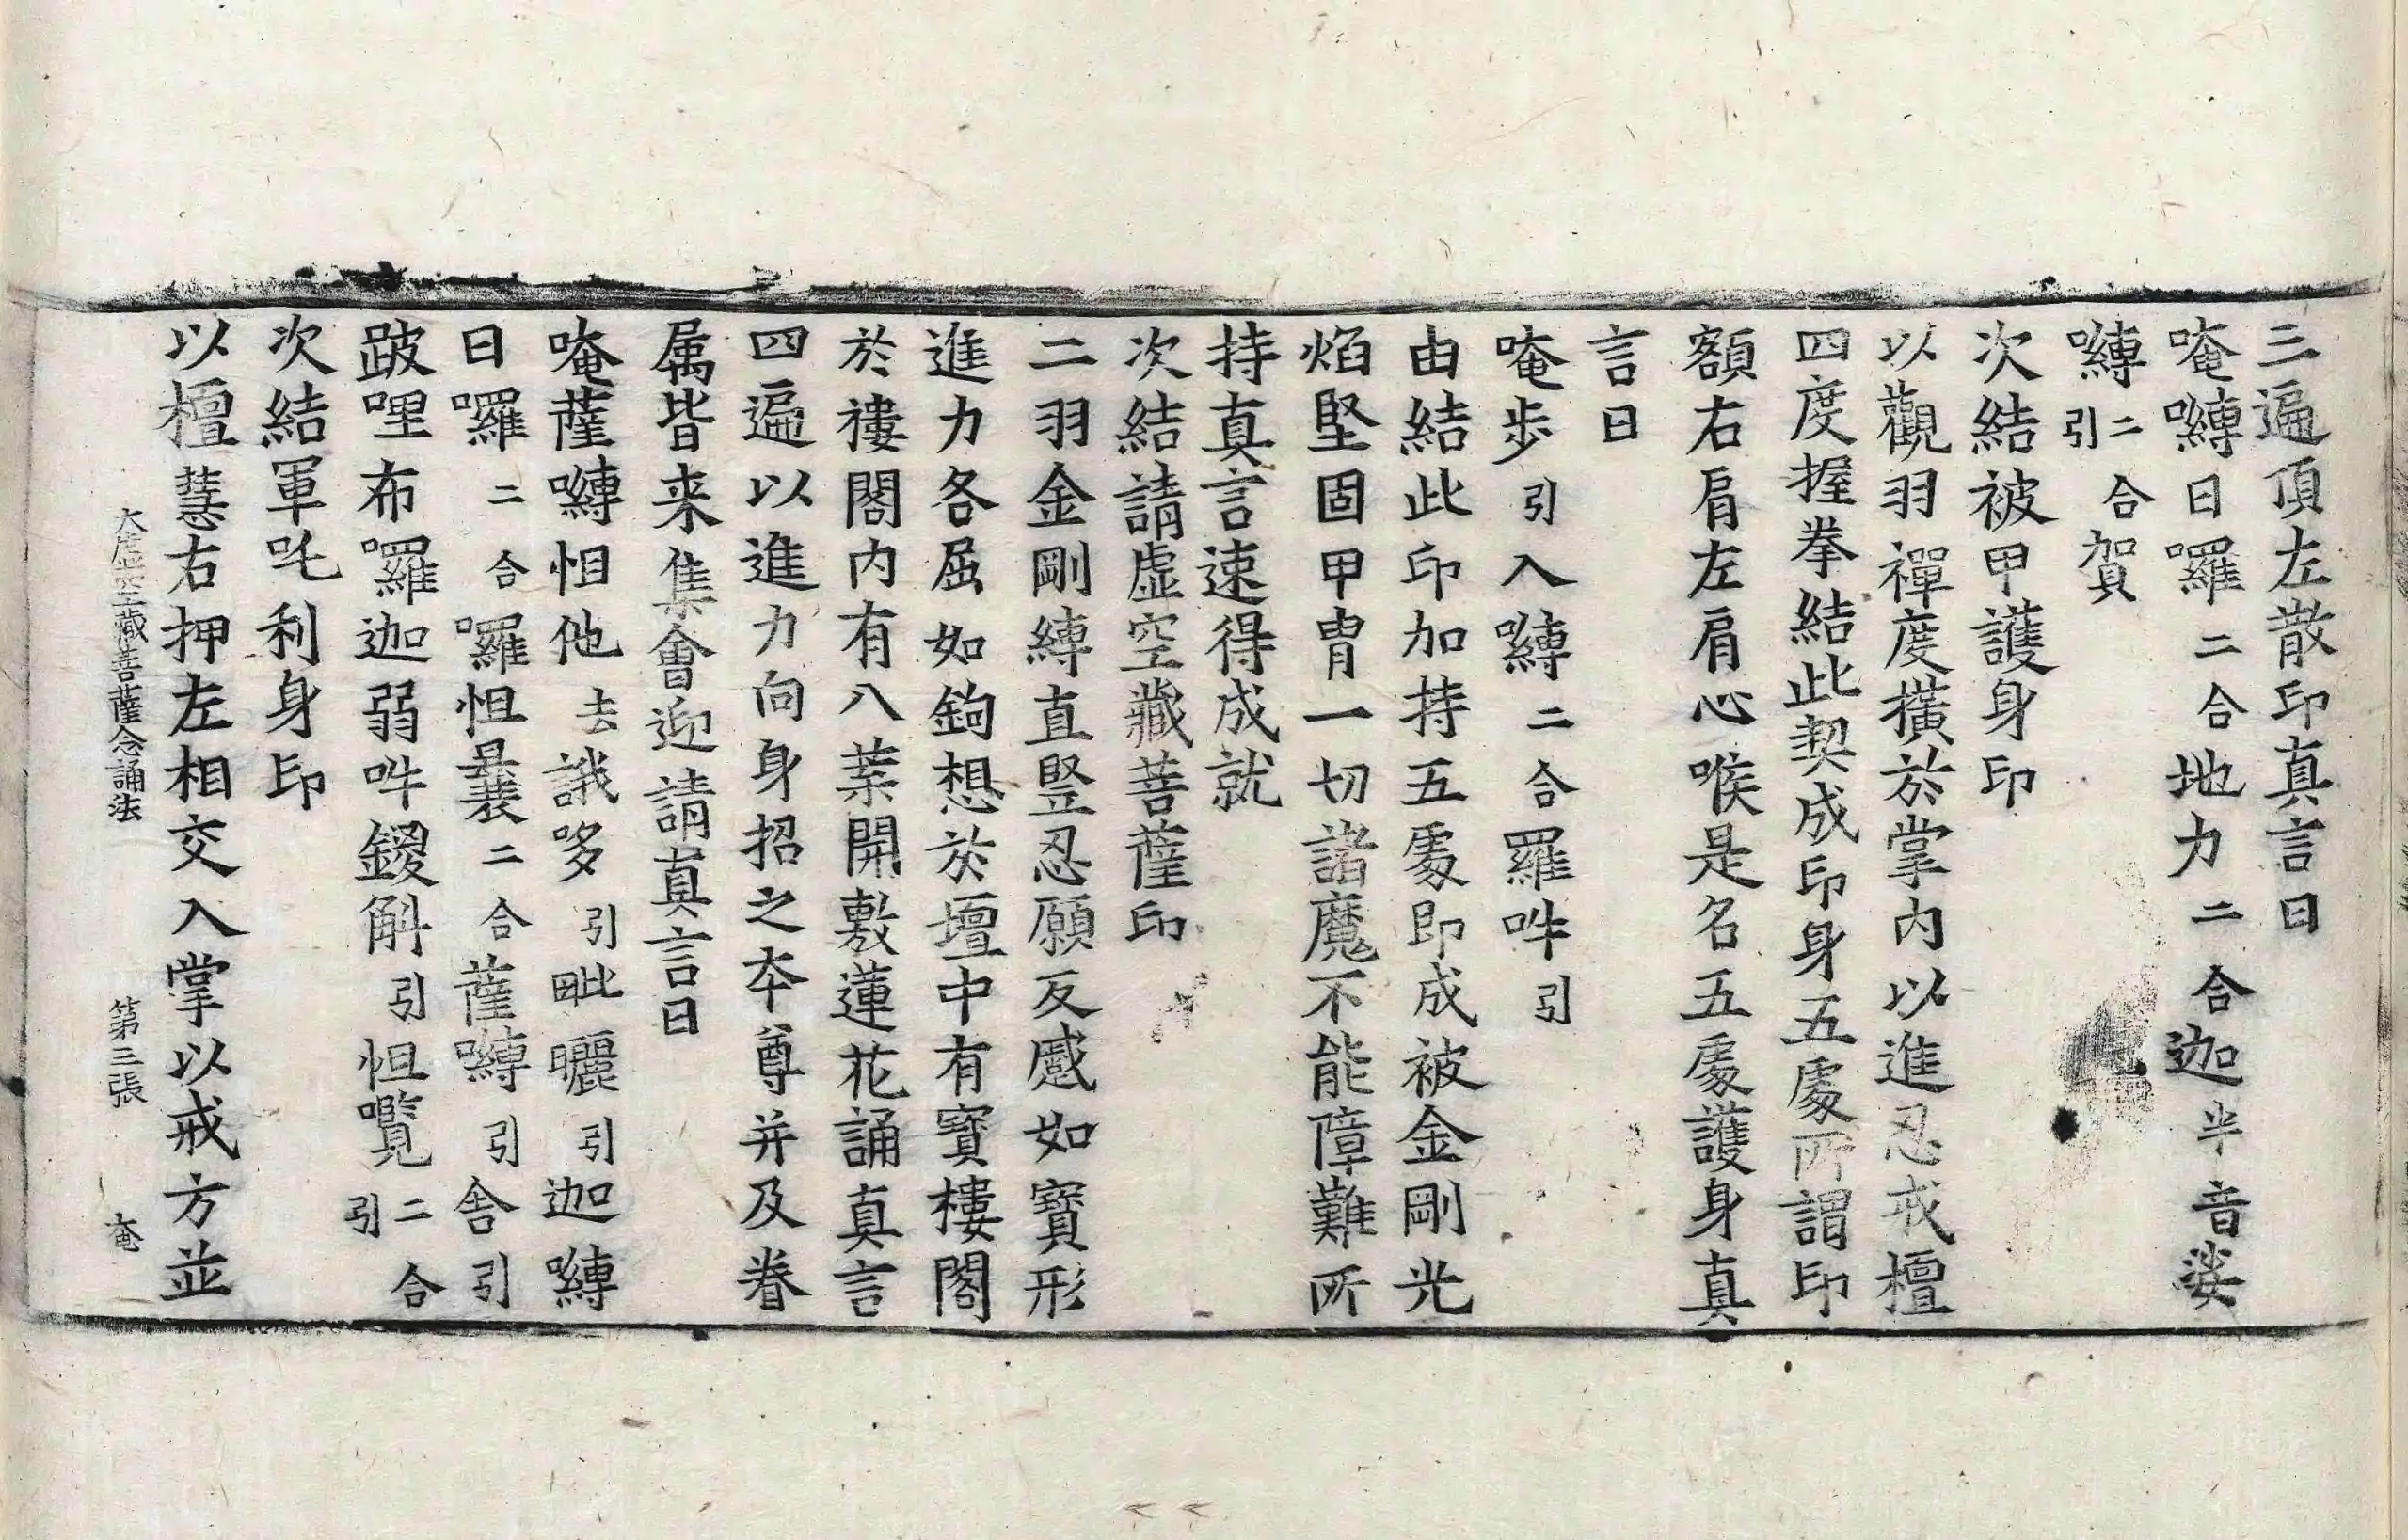 三遍頂左散印真言曰
唵嚩日囉二合地力二合迦半音娑
嚩二合引賀
次結被甲護身印
以觀羽禪度撗於掌內以進忍戒檀
四度握拳結此契成印身五處所謂印
額右肩左肩心喉是名五處護身真
言曰
唵步引入嚩二合羅吽引
由結此印加持五處即成被金剛光
焰堅固甲冑一切諸魔不能障難所
持真言速得成就
次結請虛空藏菩薩印
二羽金剛縛直竪忍願反慼如寶形
進力各屈如鉤想於壇中有寶樓閣
於褸閣內有八葉開敷蓮花誦真言
四遍以進力向身招之夲尊并及眷
属皆来集會迎請真言曰
唵薩嚩怛他去誐哆引毗曬引迦嚩
日囉二合囉怛曩二合薩嚩引舍引
跛哩布囉迦弱吽鑁斛引怛嚂二合引
次結軍吒利身印
以檀慧右押左相交入掌以戒方並
大虛空藏菩薩念誦法 第三張 奄